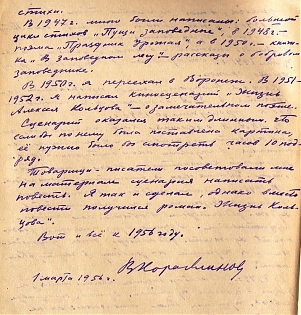 стихи.
В 1947 г. мною были написаны: большой
цикл стихов "Пущи заповедные", в 1948 г. –
поэма "Праздник Урожая", а в 1950 г. – книж-
ка "В заповедном лесу" – рассказы о бобровом
заповеднике.
В 1950 г. я переехал в Воронеж. В 1951-
1952 г. я написал киносценарий "Жизнь
Алексея Кольцова" – о замечательном поэте.
Сценарий оказался таким длинным, что
если бы по нему была поставлена картина,
её нужно было бы смотреть часов 10 под-
ряд.
Товарищи-писатели посоветовали мне
на материалах сценария написать
повесть. Я так и сделал, однако вместо
повести получился роман "Жизнь Коль-
цова".
Вот и всё к 1956 году.
1 марта 1956 г. ВКораблинов